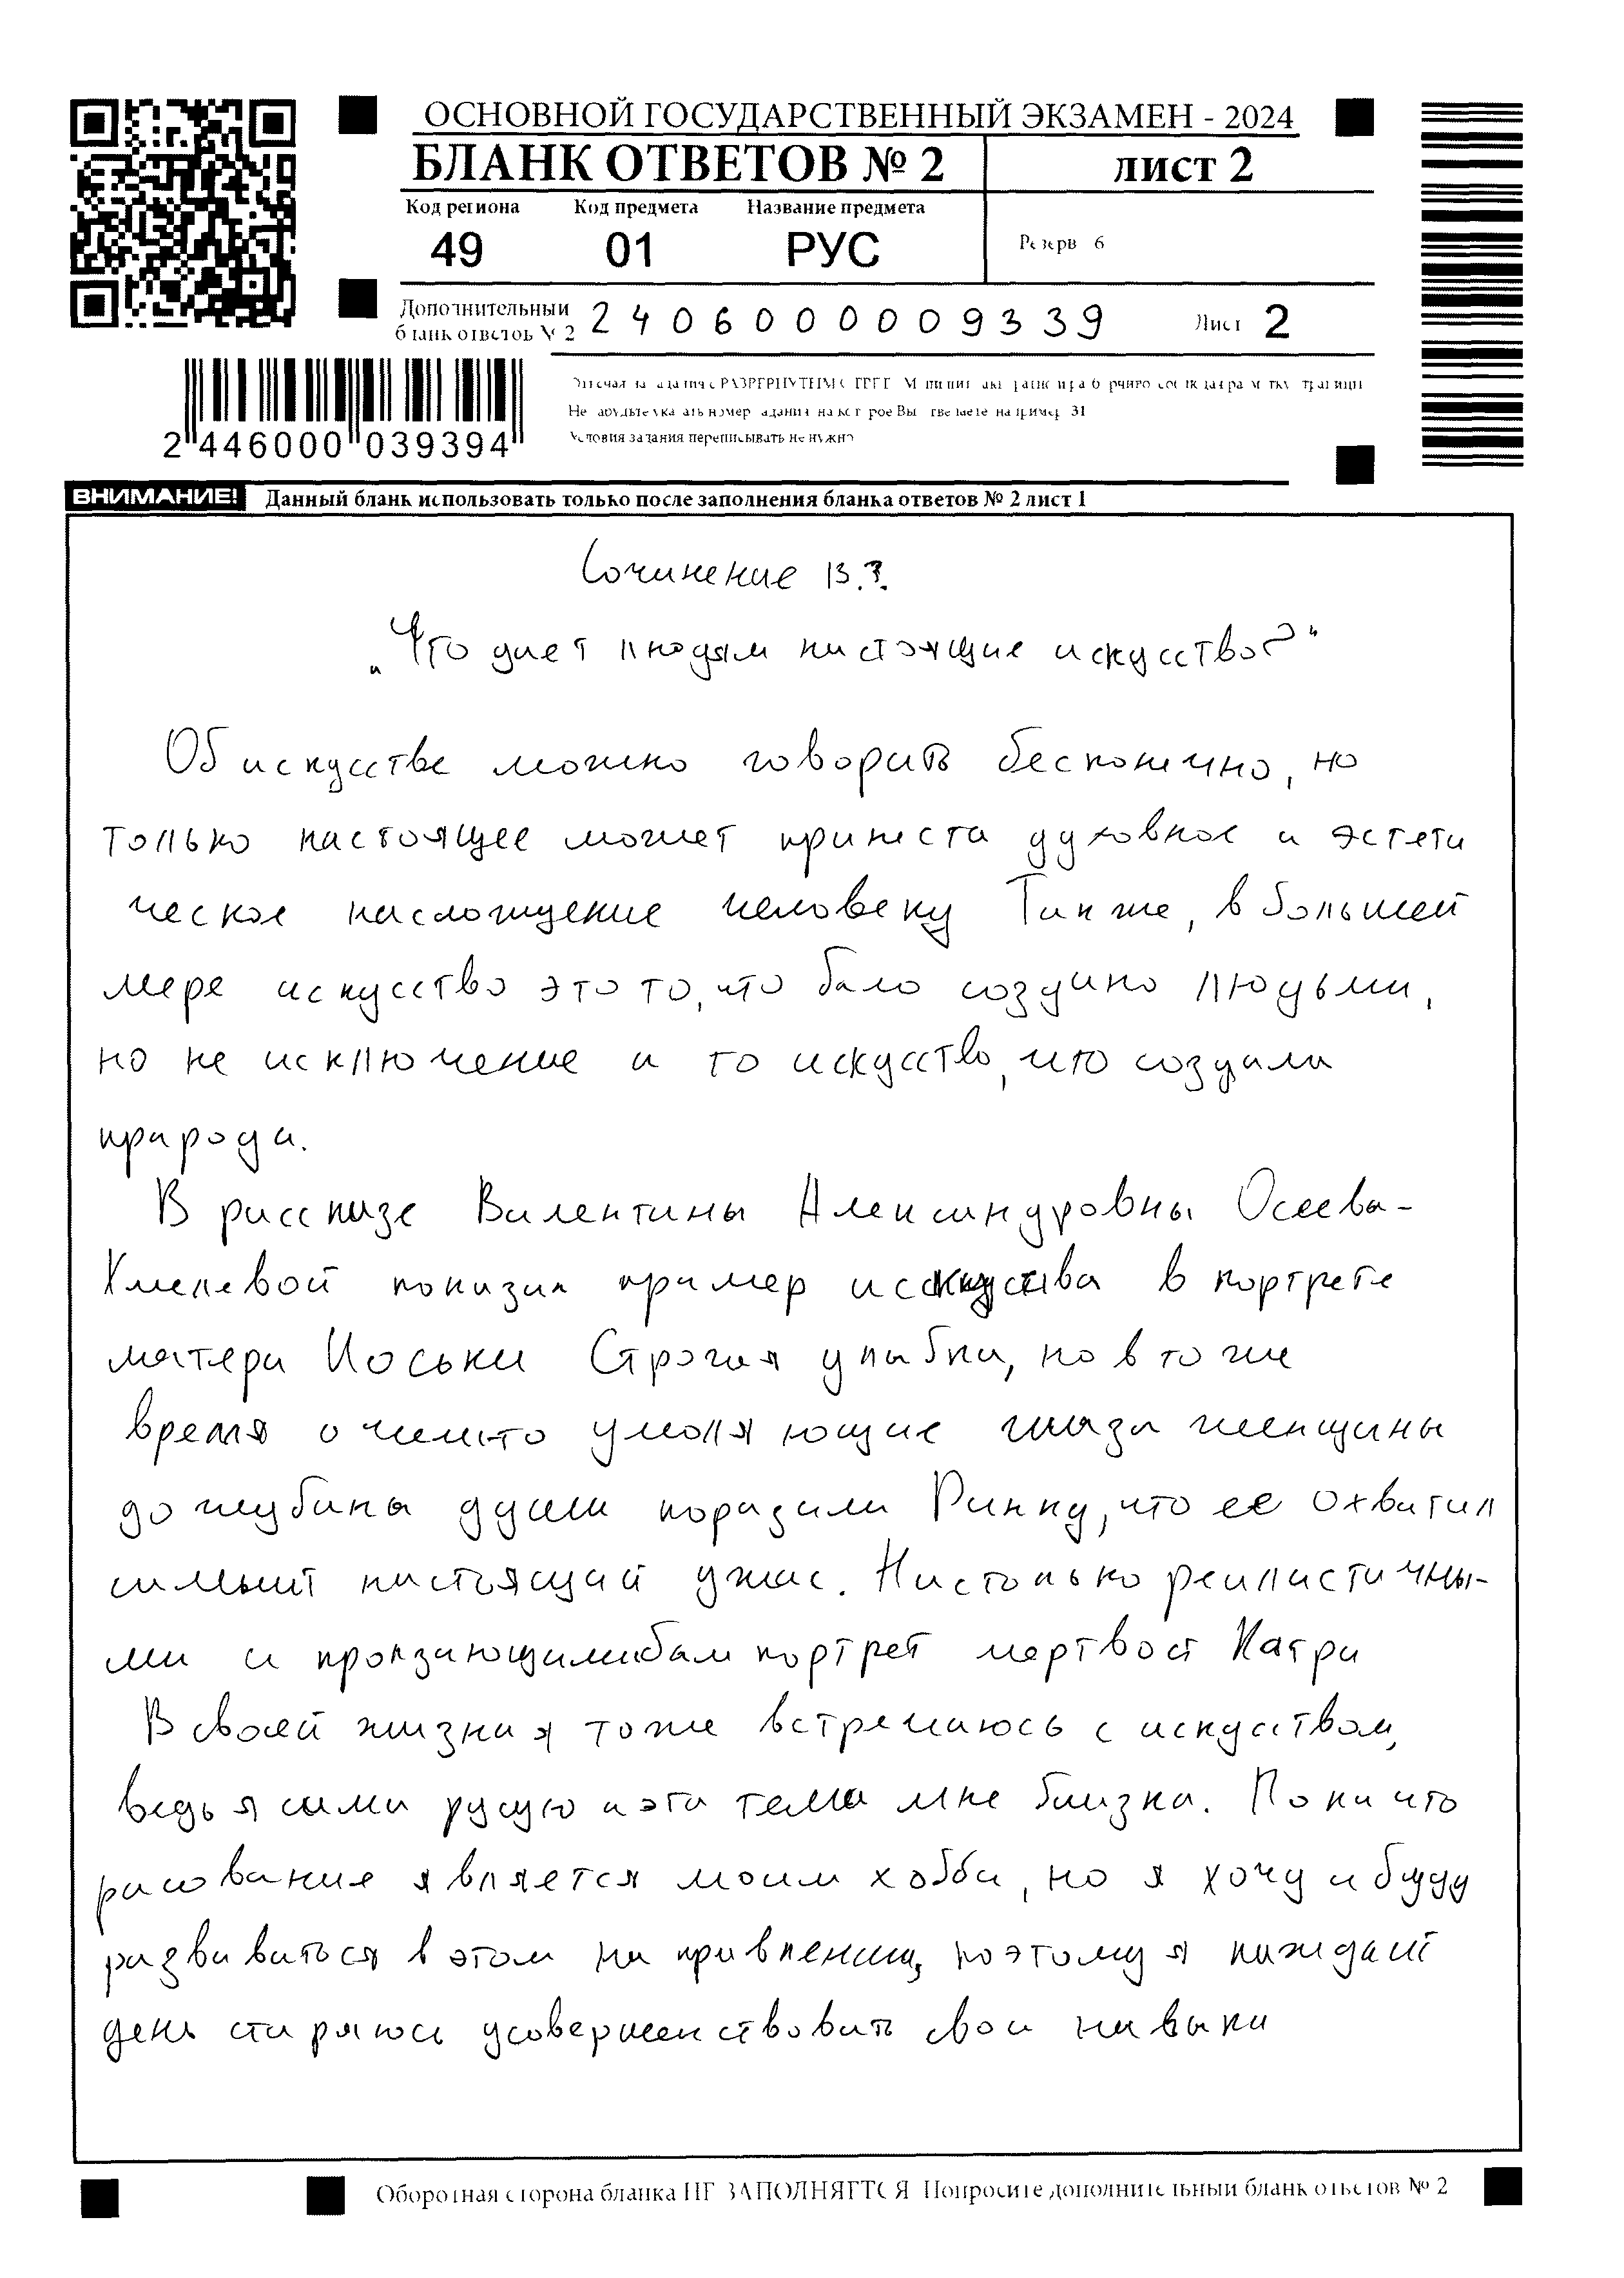 ОСНОВНОЙ ГОСУДАРСТВЕННЫЙ ЭКЗАМЕН - 2024
БЛАНК ОТВЕТОВ № 2
лист 2
Код региона
Код предмета
Название предмета
49
01
РУС
Резерв 6
Дополнительный
бланк ответов № 2
2406000009339
Лист 2
2 446000 039394
Не номер задания на Вы например 31
Условия задания переписывать не нужно
ВНИМАНИЕ! Данный бланк использовать только после заполнения бланка ответов № 2 лист 1
Сочинение 13.3.
„Что дает людям настоящие искусство?"
Об искусстве можно говорить бесконечно, но
только настоящее может принести духовное и эстети
ческое наслождение человеку Также, в большей
мере искусство это то, что было создано людьми,
но не исключение и то искусство, что создала
природа.
В рассказе Валентины Александровны Осеева-
Хмелевой показан пример исскуства в портрете
матери Иоськи Строгая улыбка, но в то же
время о чемто умоляющие глаза женщины
до глубины души поразили Динку, что ее охватил
сильный настоящий ужас. Настолько реалистичны-
ми и пронзающими был портрет мертвой Катри
В своей жизни я тоже встречаюсь с искуством,
ведь я сама русую и эта тема мне близка. Пока что
рисование является моим хобби, но я хочу и буду
развиваться в этом направлении, поэтому я каждый
день стараюсь усовершенствовать свои навыки
Оборотная сторона бланка НЕ ЗАПОЛНЯЕТСЯ Попросите дополнительный бланк ответов № 2